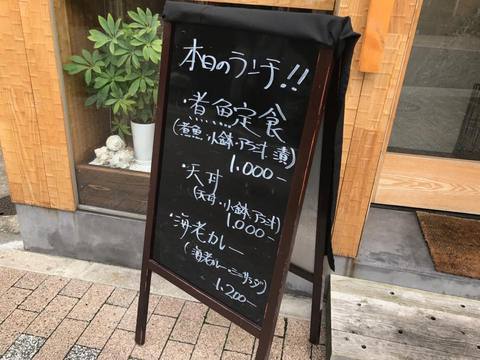 本日のランチ!!
・煮魚定食
(煮魚・小鉢・アラ汁・漬)
1.000-
・天丼
(天丼・小鉢・アラ汁)
1.000-
・海老カレー
(海老カレー・ミニサラダ)
1.200-